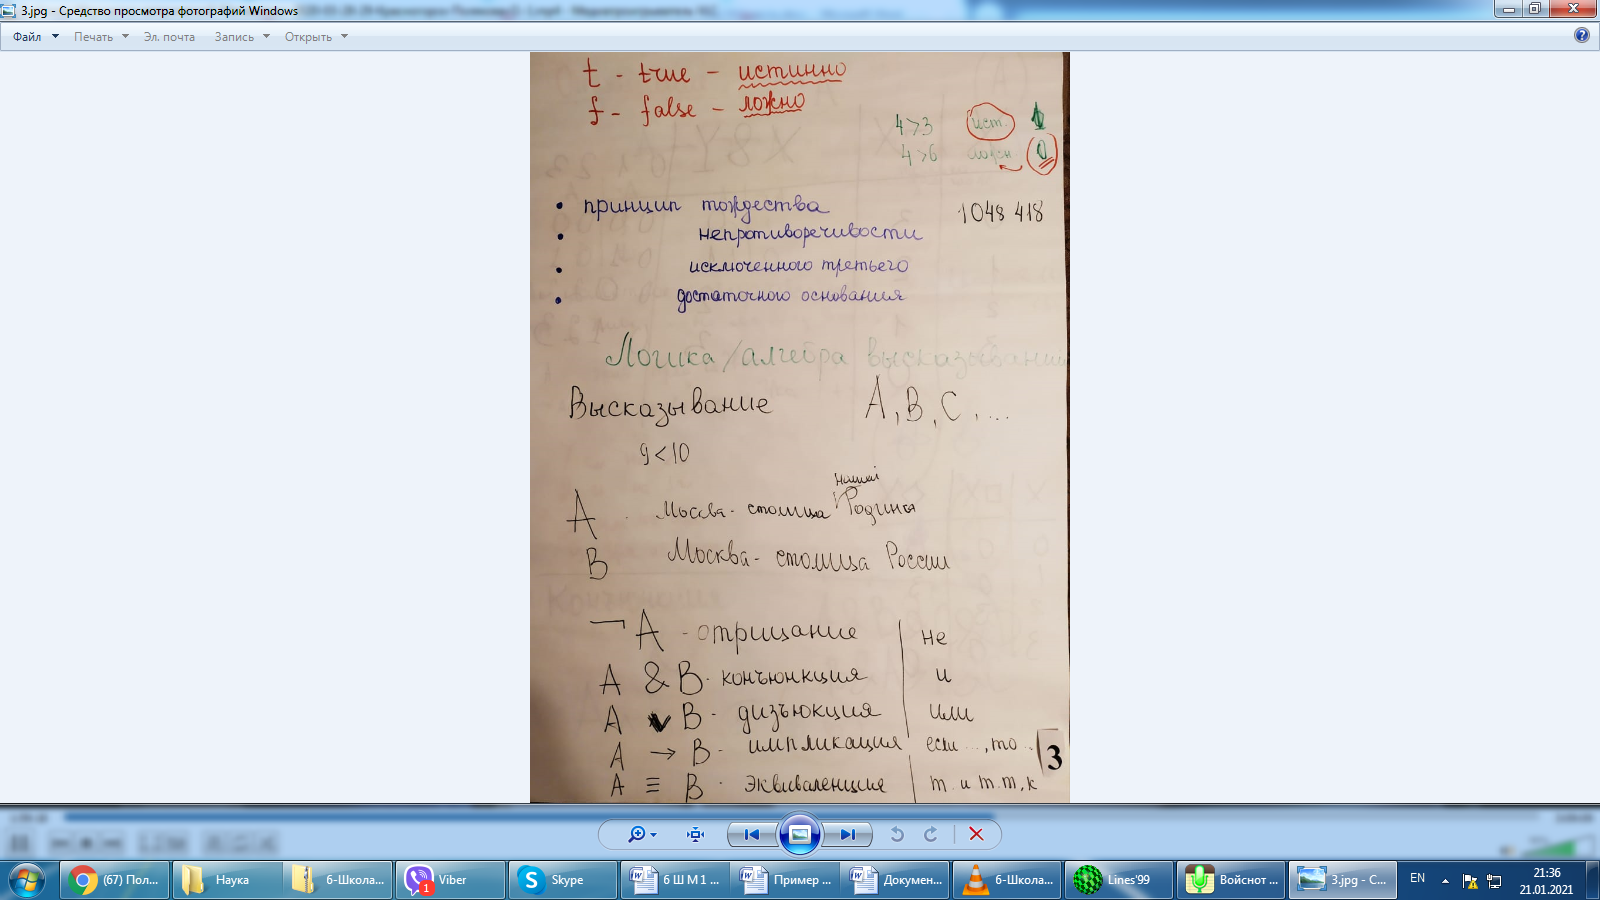 3.jpg - Средство просмотра фотографий Windows
Файл Печать Эл. почта Запись Открыть
t - true - истинно
f - false - ложно
4>3 ист. 1
4>6 ложн 0
• принцип тождества
1048 418
• непротиворечивости
• исключенного третьего
• достаточного основания
Логика/алгебра высказываний
Высказывание A, B, C, ...
9<10
нашей
A - Москва - столица Родины
B Москва - столица России
¬ A - отрицание | не
A & B - конъюнкция | и
A v B - дизъюкция | или
A → B - импликация | если ..., то ...
3
A ≡ B - эквиваленция | т. и т.т, к
(67) Пол... Наука 6-Школа... Viber 1 Skype 6 Ш М 1 ... Пример ... Докумен... 6-Школа... Lines'99 Войснот ... 3.jpg - С... EN 21:36
21.01.2021